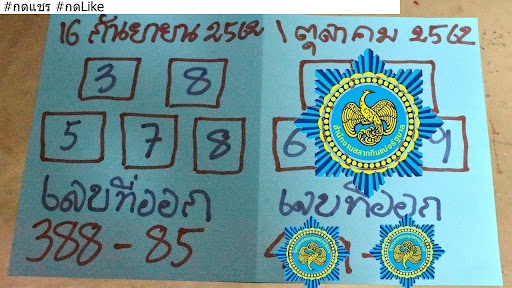 #กดแชร #กดLike
16 กันยายน 2562 1 ตุลาคม 2562
3 8
5 7 8 6 9
สำนักงานสลากกินแบ่งรัฐบาล
เลขที่ออก เลขที่ออก
388-85 -